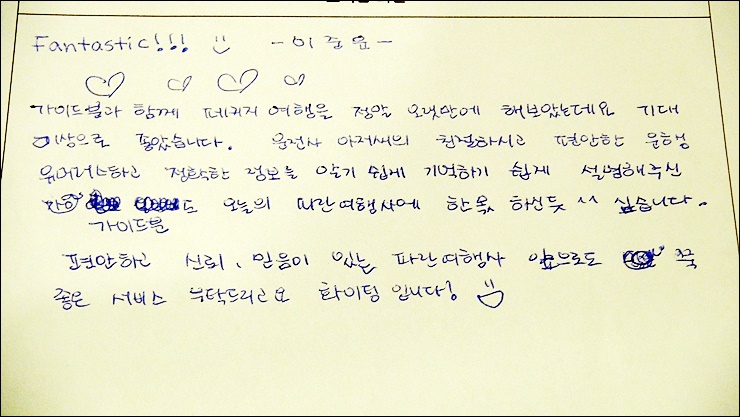 Fantastic!!! -이준용-
가이드분과 함께 패키지 여행을 정말 오랫만에 해보았는데요 기대
이상으로 좋았습니다. 운전사 아저씨의 친절하시고 편안한 운행
유머러스하고 정확한 정보를 알기 쉽게 기억하기 쉽게 설명해주신
오늘의 파란여행사에 한몫 하신듯 ^^ 싶습니다.
가이드분
편안하고 신뢰, 믿음이 있는 파란여행사 앞으로도 쭉
좋은 서비스 부탁드리고요 화이팅 입니다!